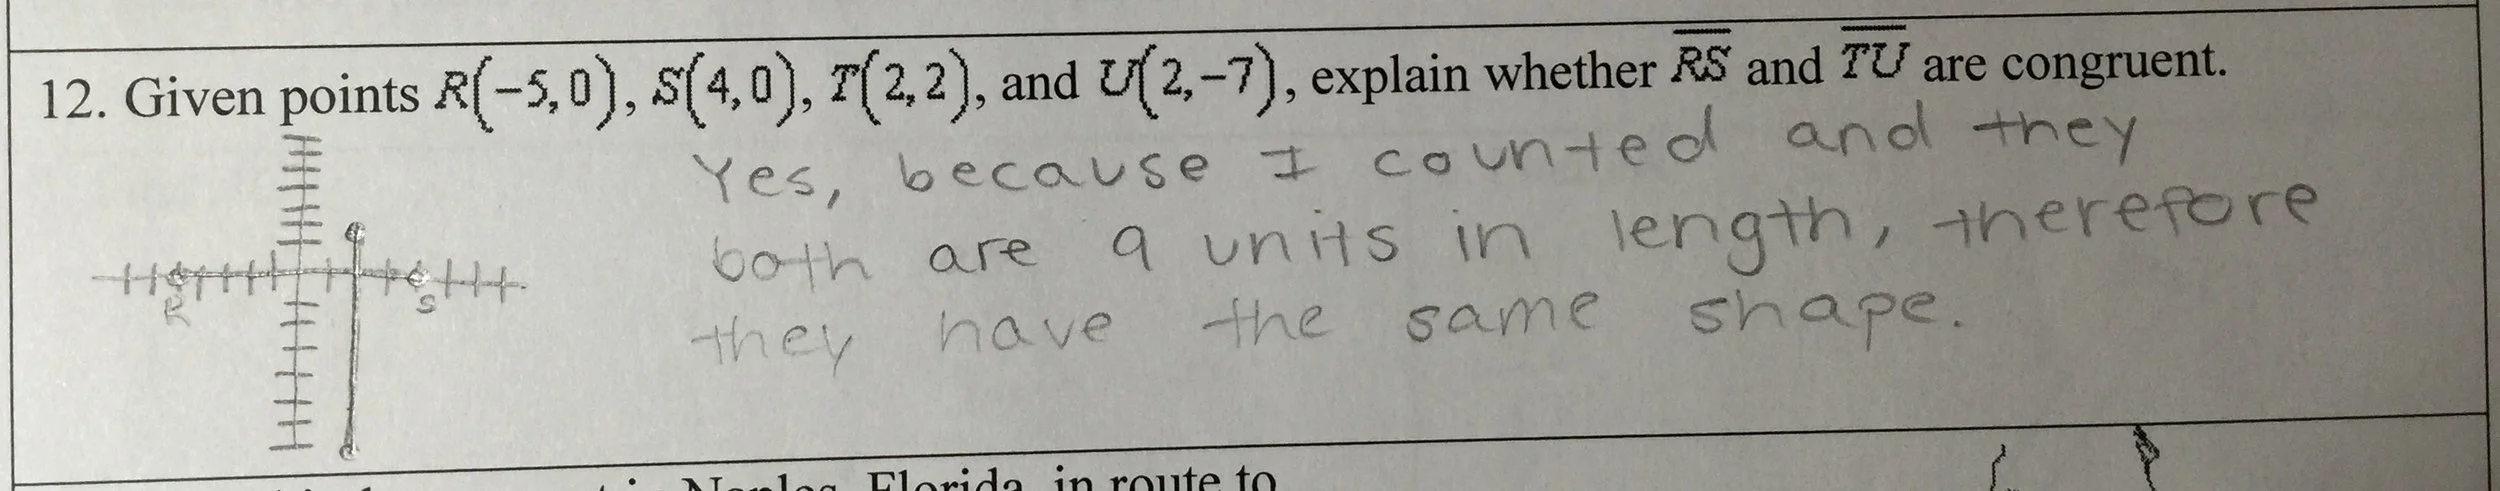 12. Given points R(−5,0), S(4,0), T(2,2), and U(2,−7), explain whether R̅S̅ and T̅U̅ are congruent.
Yes, because I counted and they
both are 9 units in length, therefore
they have the same shape.
R
S
Naples, Florida, in route to